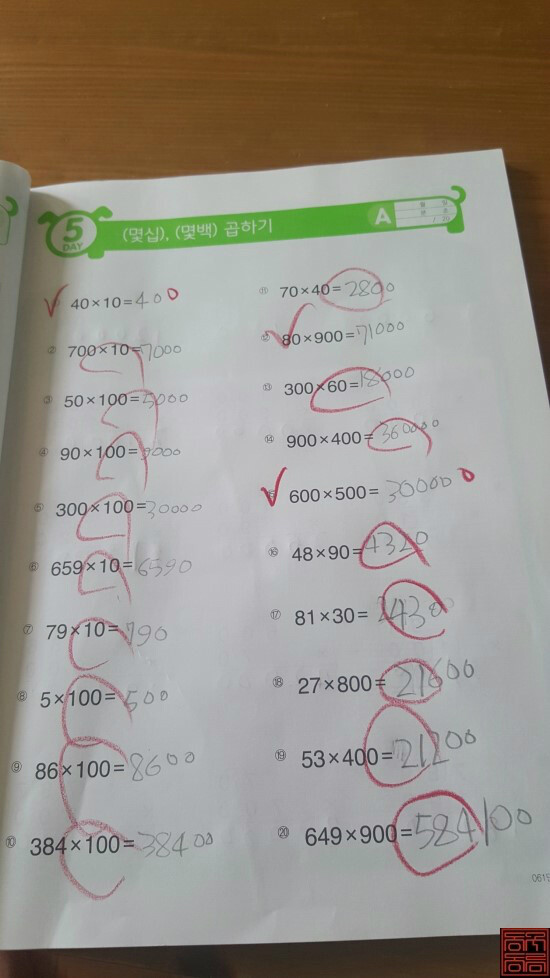 5
DAY
(몇십), (몇백) 곱하기
A
40×10=400
② 700×10=7000
③ 50×100=5000
④ 90×100=9000
⑤ 300×100=30000
⑥ 659×10=6590
⑦ 79×10=790
⑧ 5×100=500
⑨ 86×100=8600
⑩ 384×100=38400
⑪ 70×40=2800
⑫ 80×900=71000
⑬ 300×60=18000
⑭ 900×400=360000
600×500=300000
⑯ 48×90=4320
⑰ 81×30=2430
⑱ 27×800=21600
⑲ 53×400=21200
⑳ 649×900=584100